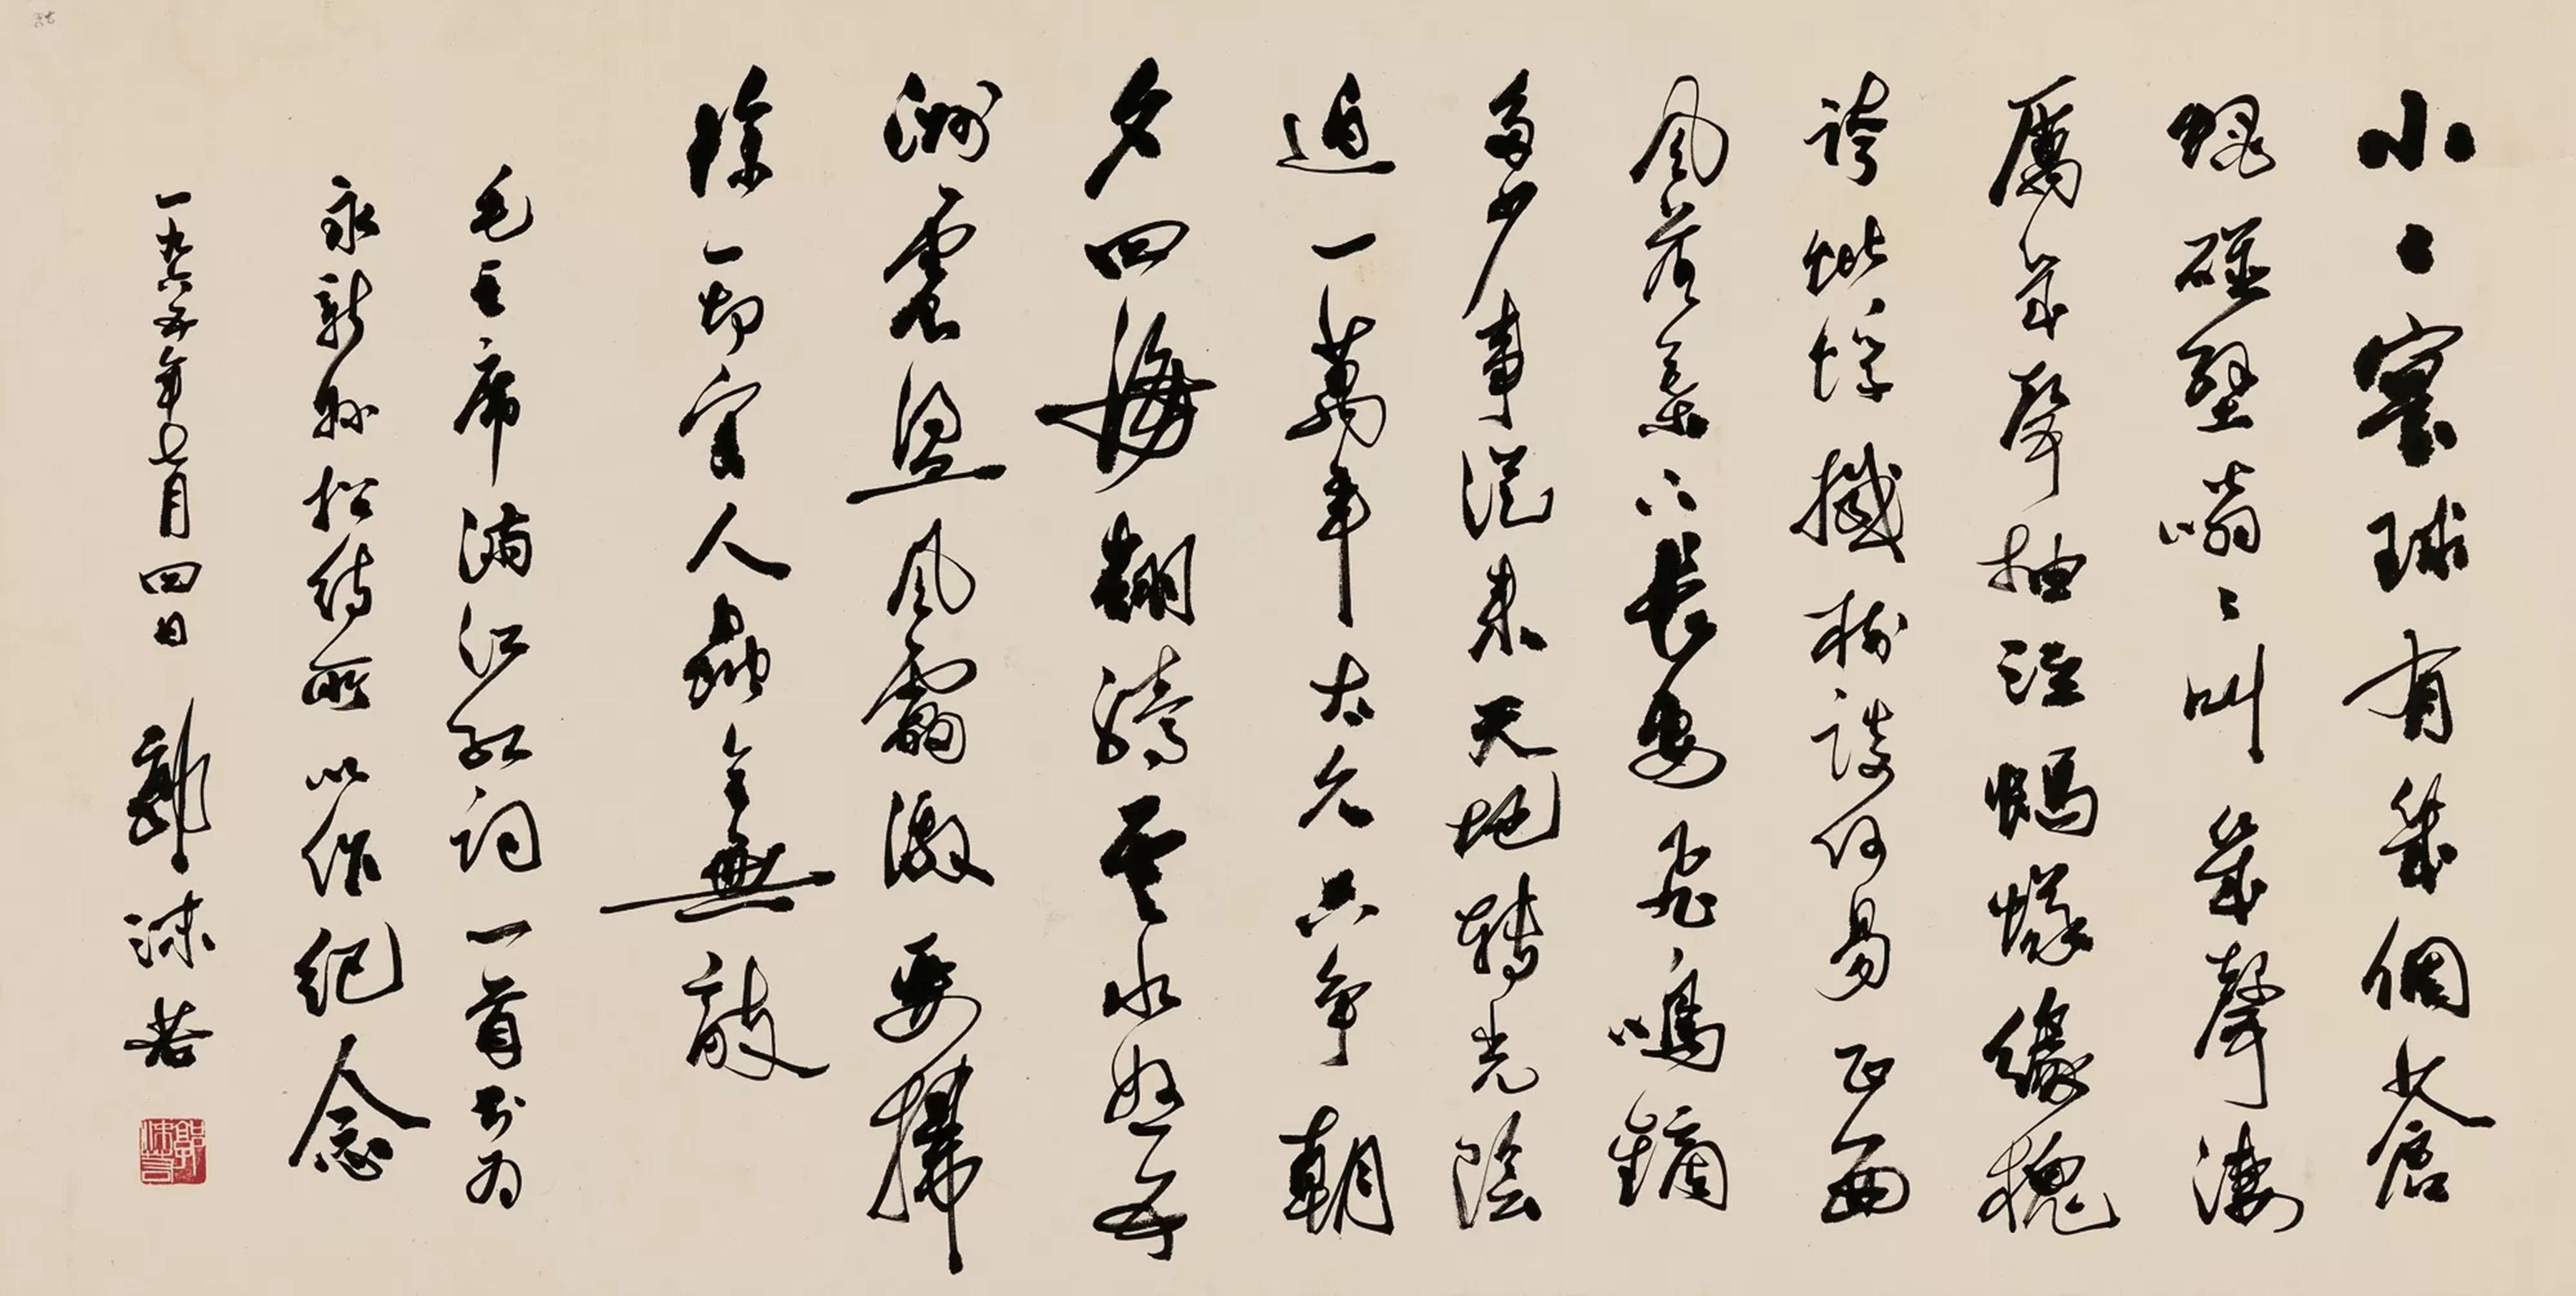 小〻寰球有幾個蒼
蠅碰壁嗡〻叫幾聲淒
厲幾聲抽泣螞蟻緣槐
誇蚍蜉撼樹談何易正西
風落葉下長安飛鳴鏑
多少事從來天地轉光陰
迫一萬年太久只爭朝
夕四海翻騰雲水怒五
洲震盪風雷激要掃
除一切害人蟲全無敵
毛主席滿江紅詞一首書为
永新縣招待所以作紀念
一九六五年七月四日 郭沫若
郭沫若